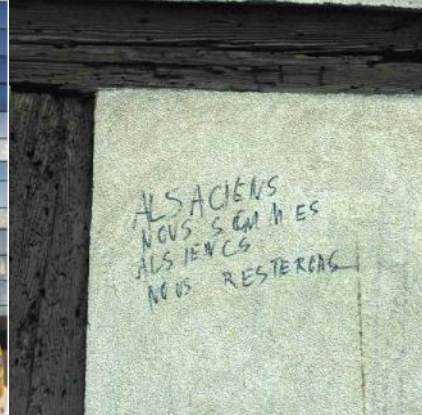 ALSACIENS
NOUS SOMMES
ALSIENCS
NOUS RESTERONS